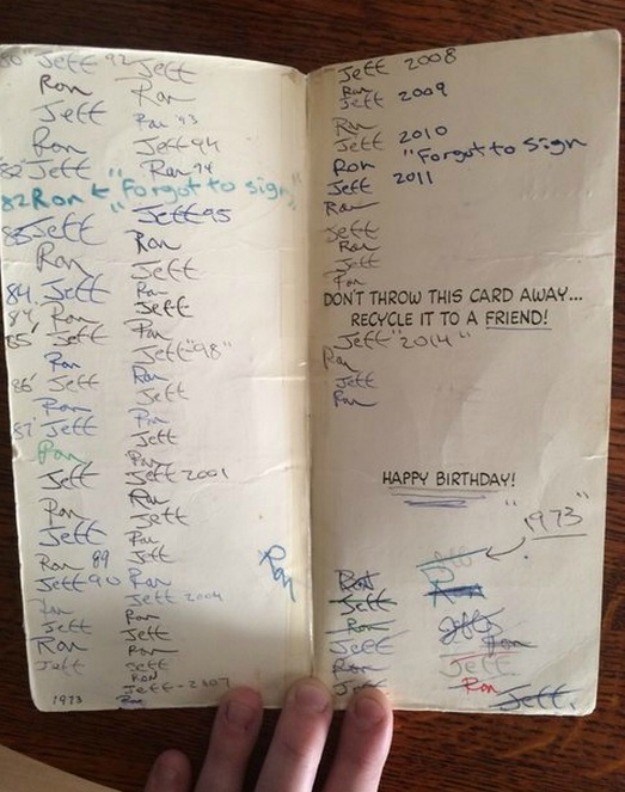 80" Jeff
Ron
Jeff
Ron
82 Jeff
82 Ron ← "Forgot to sign"
83 Jeff
Ron
84. Jeff
84' Ron
85' Jeff
Ron
86' Jeff
Ron
87' Jeff
Ron
Jeff
Ron
Jeff
Ron 89
Jeff 90
Ron
Jeff
Ron
Jeff
1973
92 Jeff
Ron
Ron '93
Jeff 94
Ron 94
Jeff 95
Ron
Jeff
Ron
Jeff
Ron
Jeff "98"
Ron
Jeff
Ron
Jeff
Ron
Jeff 2001
Ron
Jeff
Ron
Jeff
Ron
Jeff 2004
Ron
Jeff
Ron
Jeff
RON
Jeff - 2007
Ron
Ron
Jeff 2008
Ron
Jeff 2009
Ron
Jeff 2010
Ron "Forgot to Sign
Jeff 2011
Ron
Jeff
Ron
Jeff
Ron
DON'T THROW THIS CARD AWAY...
RECYCLE IT TO A FRIEND!
Jeff "2014"
Ron
Jeff
Ron
HAPPY BIRTHDAY!
"1973"
Ron
Jeff
Ron
Jeff
Ron
Jeff
Jeff
Ron
Jeff
Ron
Jeff
Ron
Jeff.